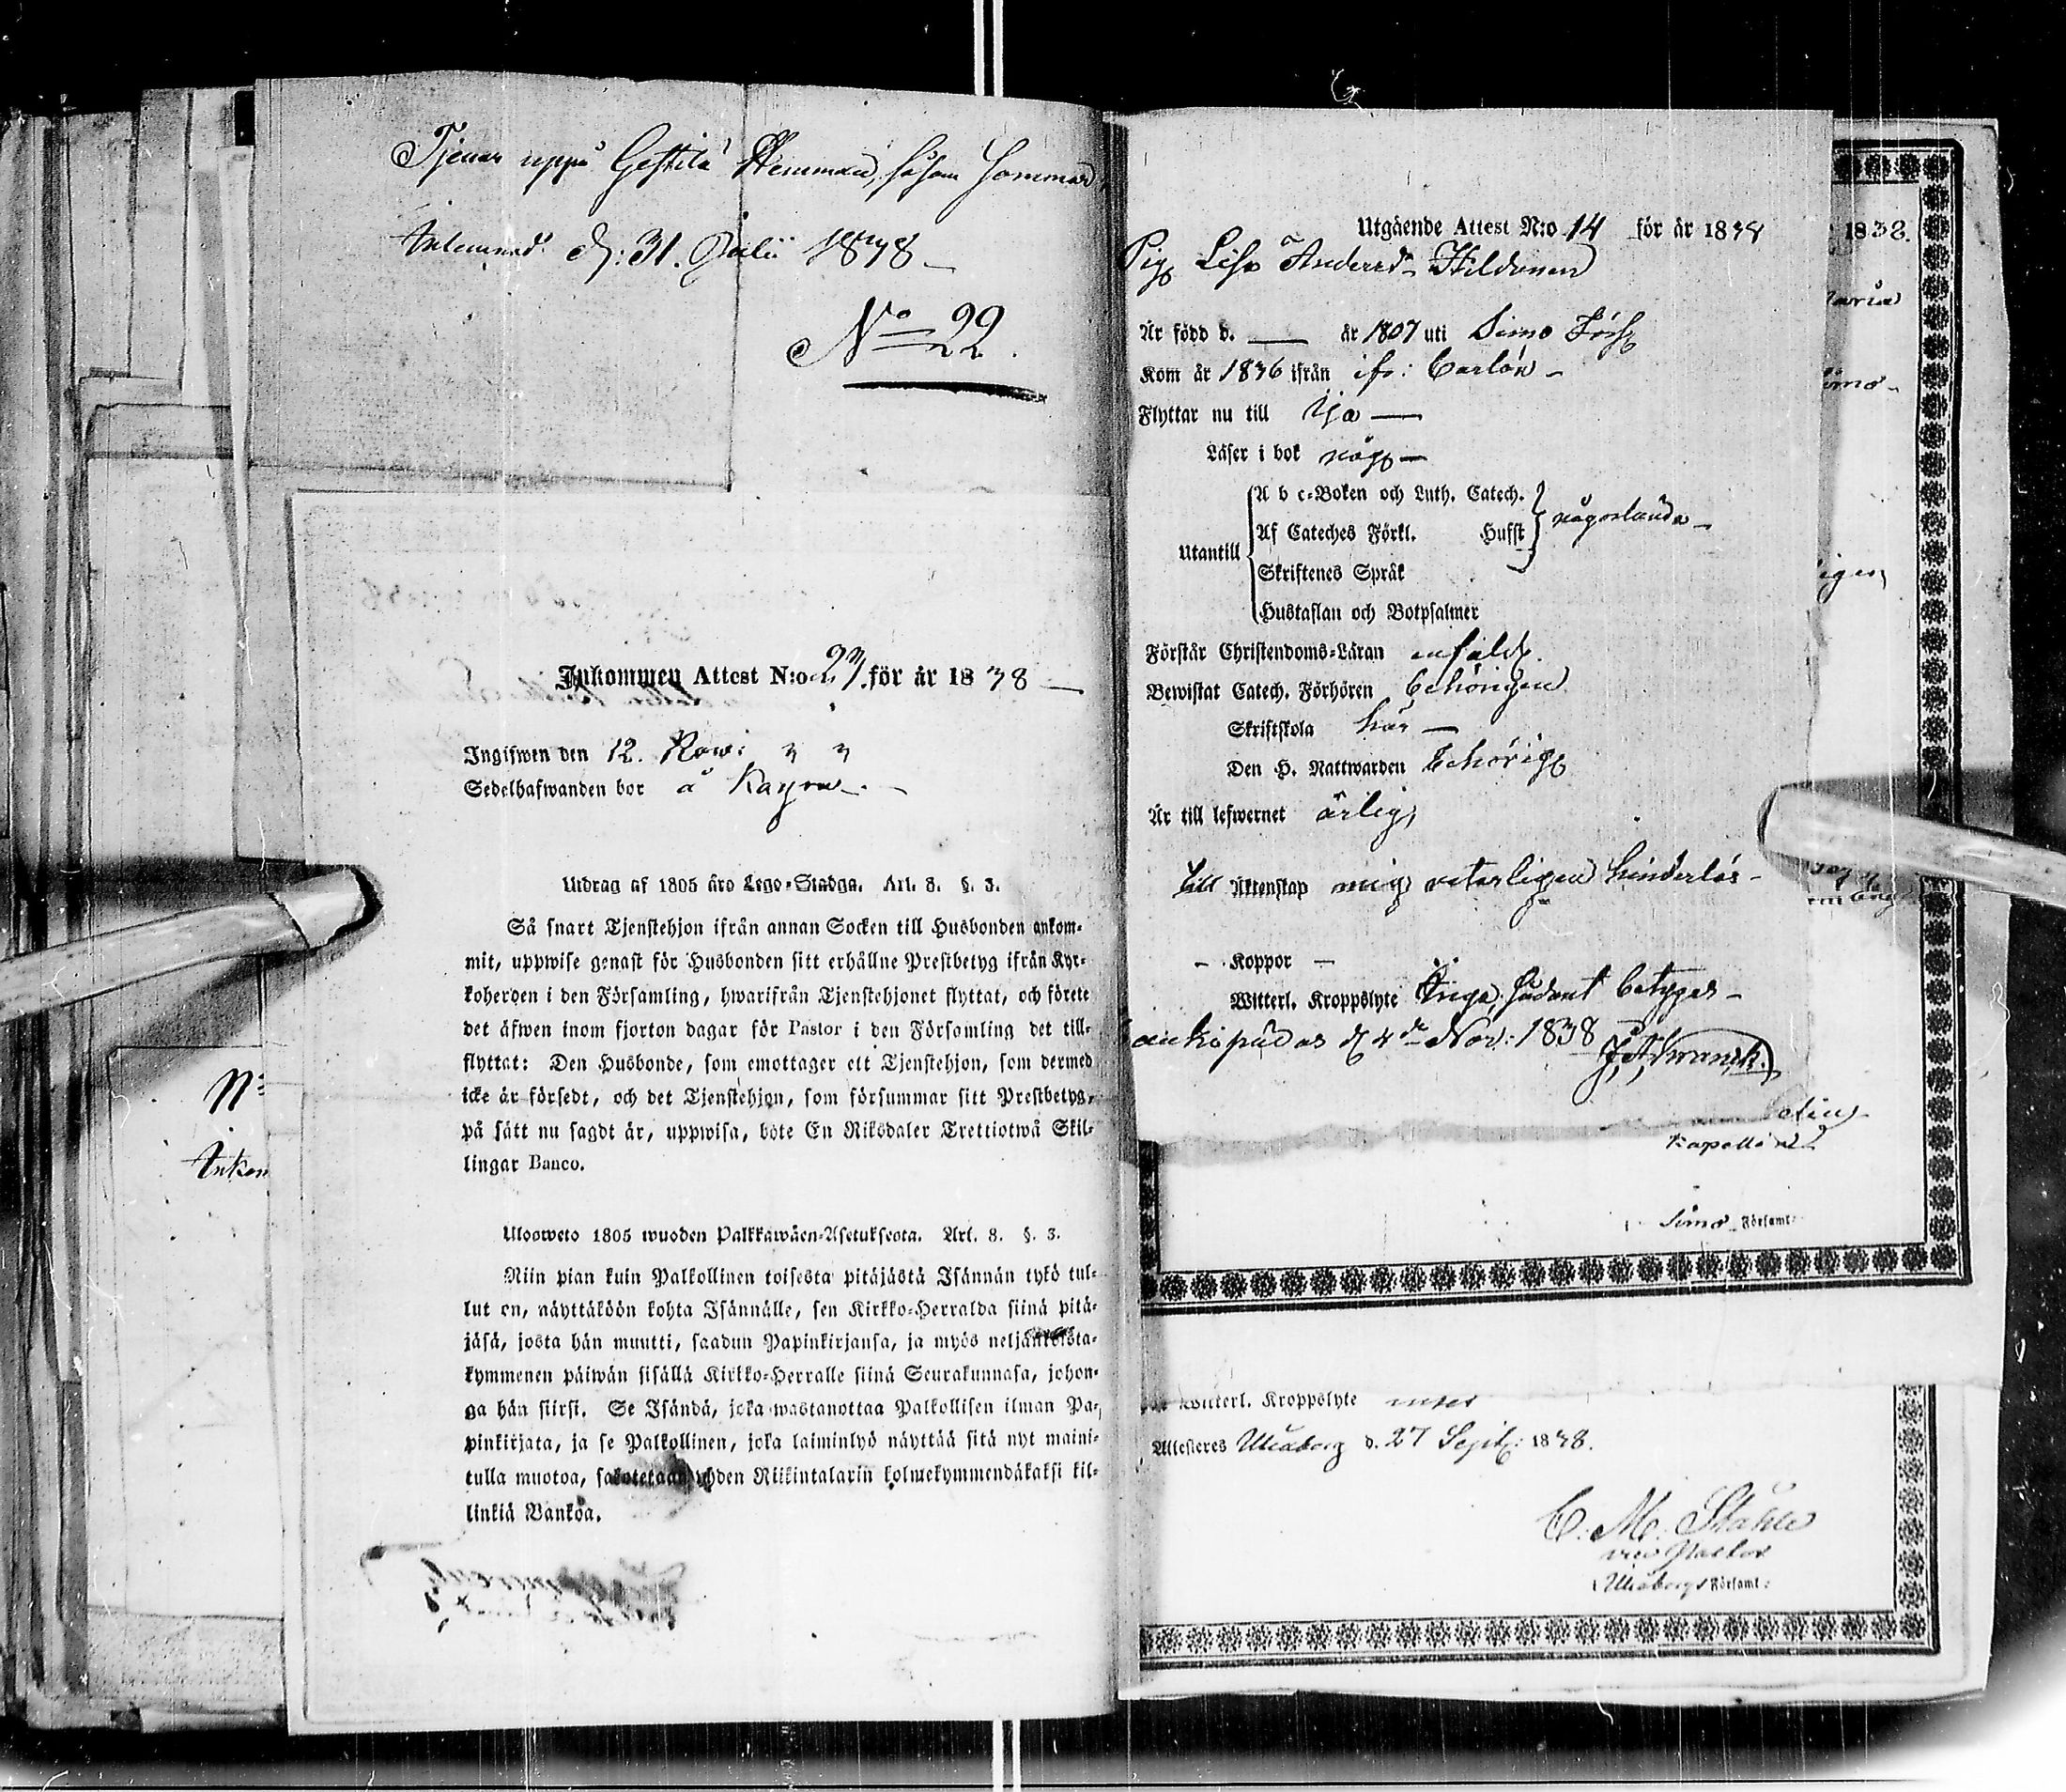 Tjenar uppå Gestilä Hemman, såsom Sommar
Inlemnad d: 31. Julii 1838
No 22.
Inkommen Attest N:o 23. för år 1838
Ingifwen den 12. Nov:
Sedelhafwanden bor å Karjen
Utdrag af 1805 års Lego-Stadga. Art. 8. §. 3.
Så snart Tjenstehjon ifrån annan Socken till Husbonden ankom-
mit, uppwise genast för Husbonden sitt erhållne Prestbetyg ifrån Kyr-
koherden i den Församling, hwarifrån Tjenstehjonet flyttat, och förete
det äfwen inom fjorton dagar för Pastor i den Församling det till-
flyttat: Den Husbonde, som emottager ett Tjenstehjon, som dermed
icke är försedt, och det Tjenstehjon, som försummar sitt Prestbetyg,
på sätt nu sagdt är, uppwisa, böte En Riksdaler Trettiotwå Skil-
lingar Banco.
Ulosweto 1805 wuoden Palkkawäen-Asetuksesta. Art. 8. §. 3.
Niin pian kuin Palkollinen toisesta pitäjästä Isännän tykö tul-
lut on, näyttäköön kohta Isännälle, sen Kirkko-Herralda siinä pitä-
jäsä, josta hän muutti, saadun Papinkirjansa, ja myös neljäntoista-
kymmenen päiwän sisällä Kirkko-Herralle siinä Seurakunnasa, johon-
ga hän siirsi. Se Isändä, joka wastanottaa Palkollisen ilman Pa-
pinkirjata, ja se Palkollinen, joka laiminlyö näyttää sitä nyt maini-
tulla muotoa, sakotetaan yhden Riikintalarin kolmekymmendäkaksi kil-
linkiä Bankoa.
No
Inkom
Utgående Attest N:o 14 för år 1838
Pig Lisa Andersd: Hildunen
Är född d. — år 1807 uti Simo Förs
Kom år 1836 ifrån ifr: Carlön
Flyttar nu till Ijo
Läser i bok någ
Utantill
A b c-Boken och Luth. Catech.
Af Cateches Förkl. Hufst någorlunda
Skriftenes Språk
Hustaflan och Botpsalmer
Förstår Christendoms-Läran enfald.
Bewistat Catech. Förhören behörigen
Skriftskola här
Den H. Nattwarden behörig
Är till lefwernet ärlig,
till Äktenskap mig veterligen hinderlös
Koppor
Witterl. Kroppslyte Inga, sådant betygas
aukipudas d 4de Nov: 1838 J. A. Franck.
Kapellan
Simo Församl:
1838.
Witterl. Kroppslyte
Attesteres Uleåborg d. 27 Sept: 1838.
C. M. Ståhle
vice Pastor
i Uleåborgs Församl: